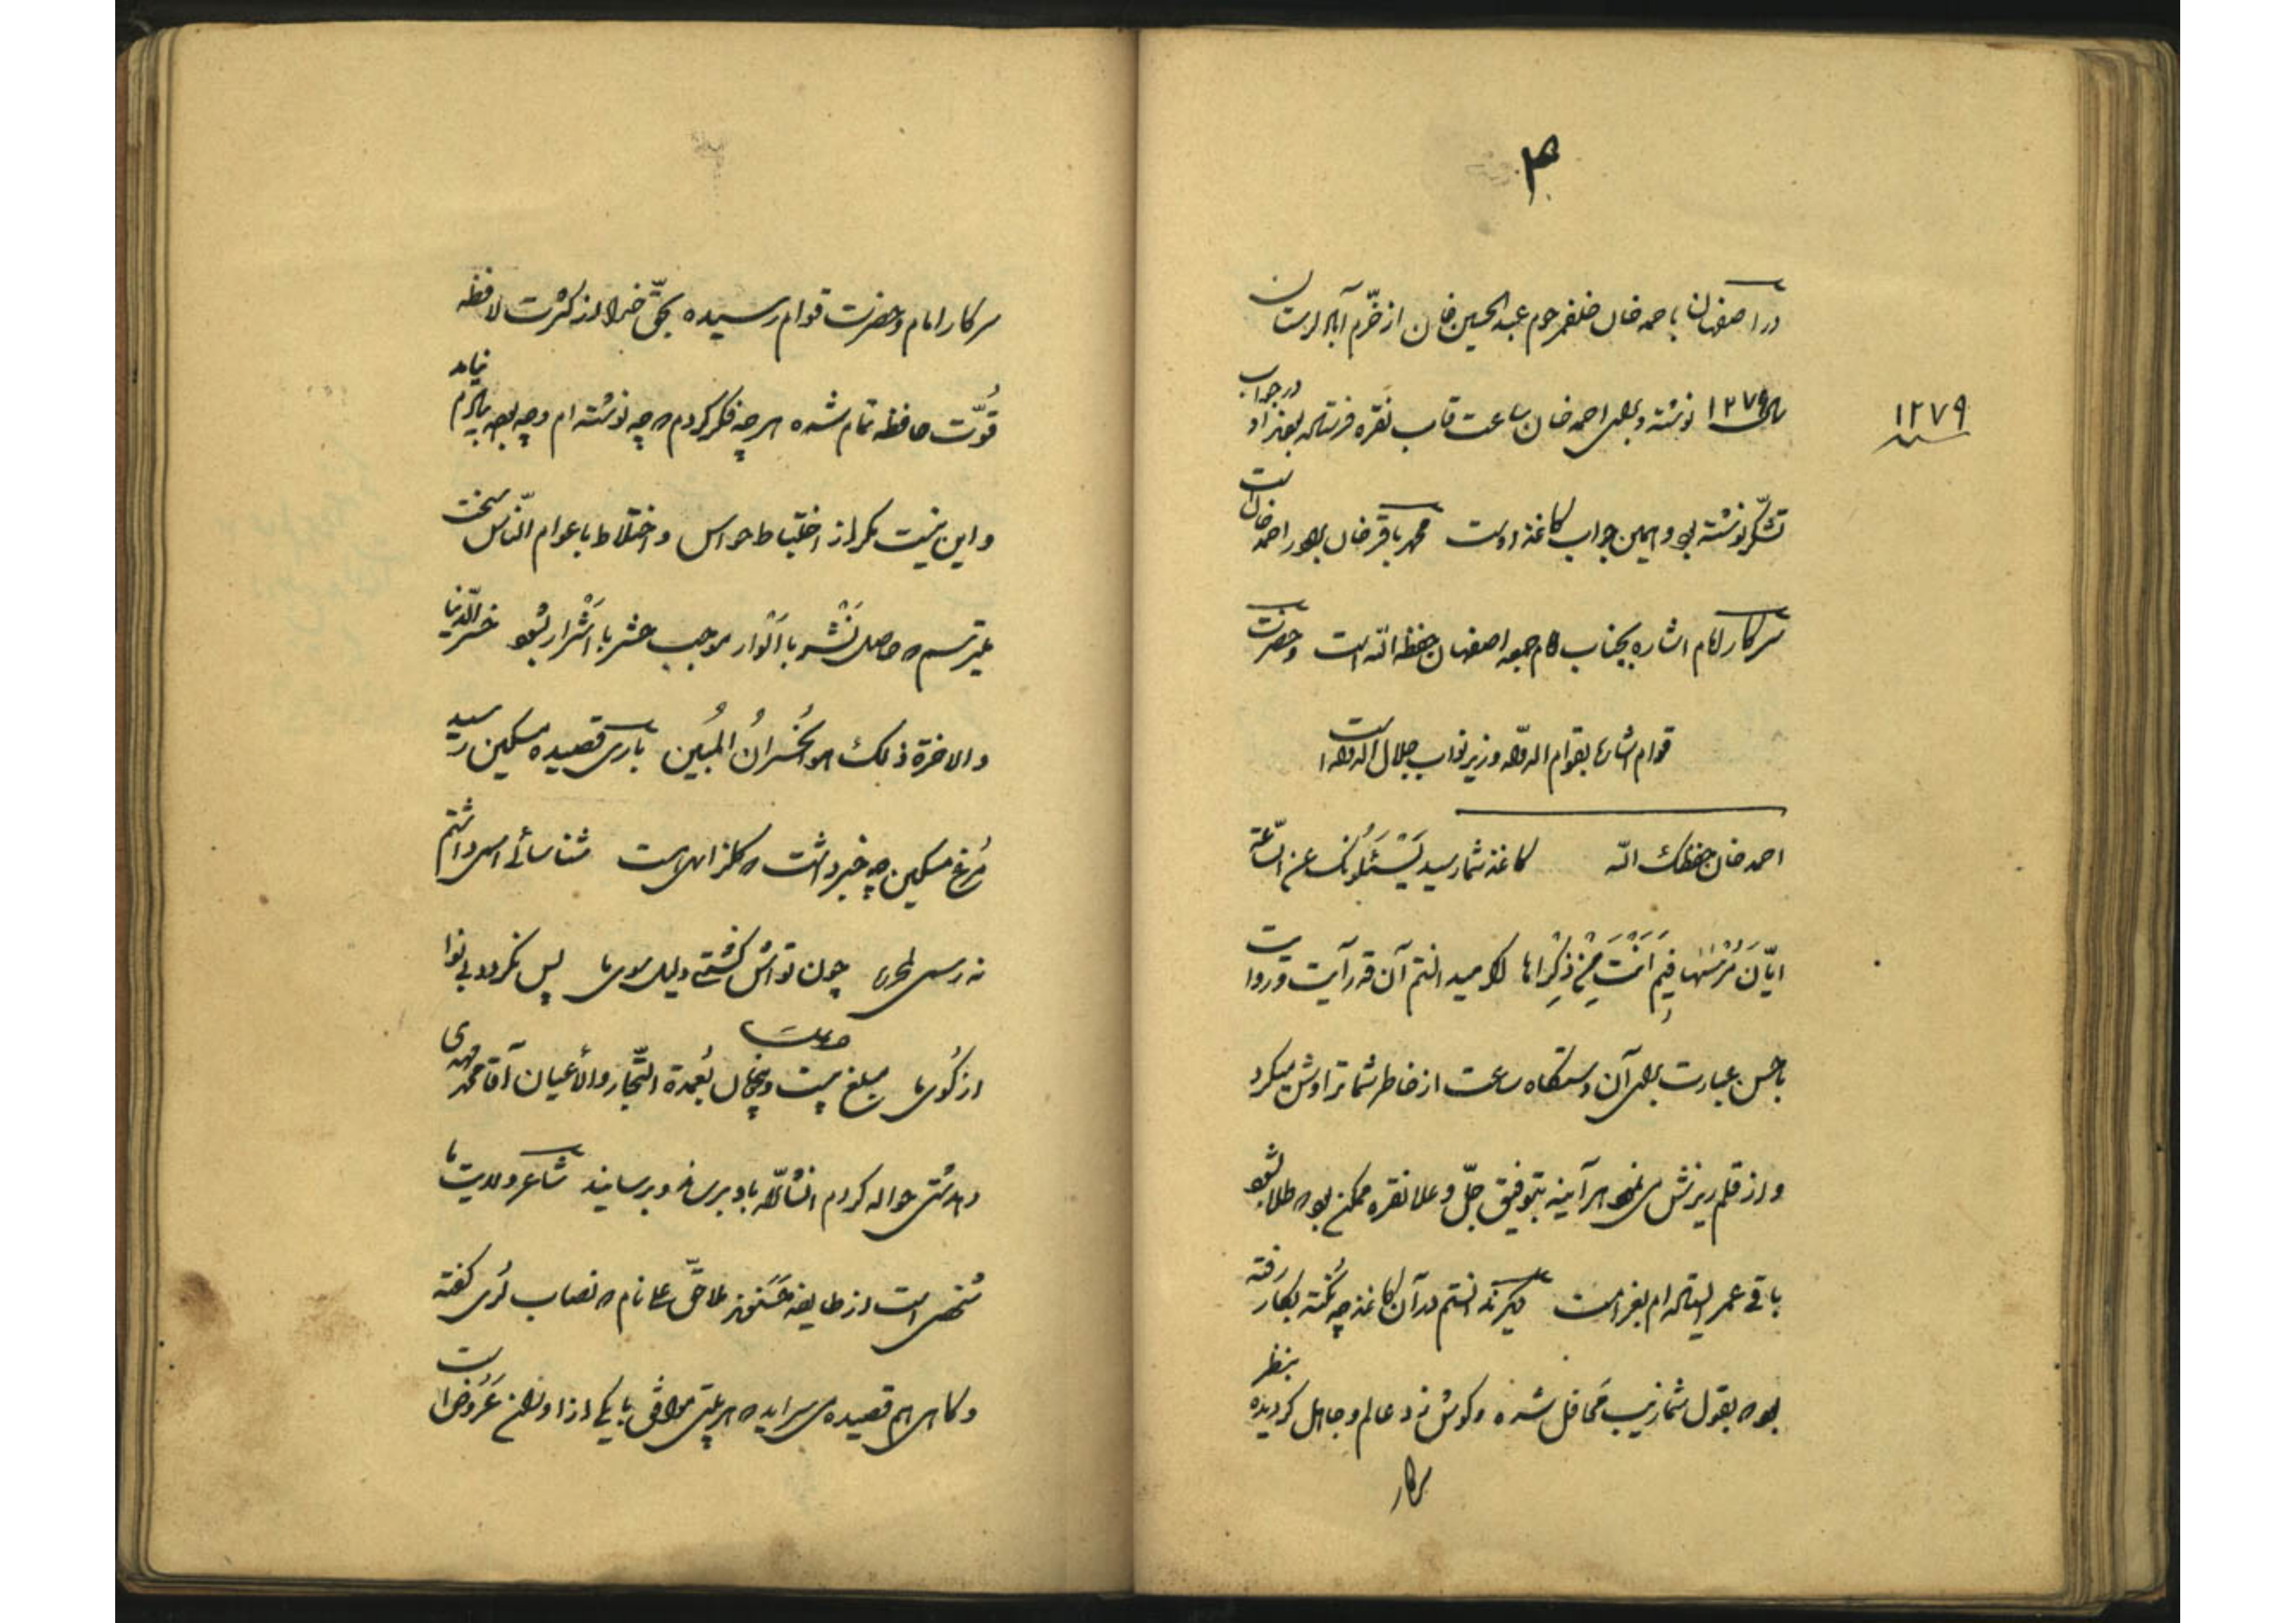 در اصفهان باحمد خان خلف مرحوم عبدالحسین خان از خرّم آباد لرستان
۱۲۷۹ سنه
سال ۱۲۷۹ نوشته و برای احمد خان ساعت قاب نقره فرستاده بودند او در جواب
تشکر نوشته بود و این جواب کاغذ اوست محمد باقر خان برادر احمد خان است
سرکار امام اشاره بجناب امام جمعه اصفهان حفظه الله است و حضرت
قوام اشاره بقوام الدوله وزیر نواب جلال الدوله است
احمد خان حفظک الله کاغذ شما رسید یَسْئَلُونَکَ عن السّاعة
ایّانَ مُرْسٰیها فیمَ اَنْتَ مِنْ ذِکْراها اگر میدانستم آن قدر آیت و روایت
با حسن عبارت برای آن دستگاه ساعت از خاطر شما تراوش میکرد
و از قلم ریزش می نمود هر آینه بتوفیق جلّ و علا نقره ممکن بود طلا بشود
باقی عمر ایستاده ام بغرامت دیگر ندانستم در آن کاغذ چه نکته بکار رفته
بود که بقول شما زیب محافل شده و گوش زد عالم و جاهل گردیده بنظر
سرکار
سرکار امام و حضرت قوام رسیده بحقّ خدا از کثرت لافظه
قُوّت حافظه تمام شده هر چه فکر کردم که چه نوشته ام و چه بود بیادم نیامد
و این نیست مگر از اختباط حواس و اختلاط با عوام النّاس سخت
میترسم که حاصل نَشْر با اَنْوار موجب حشر با اَشْرار بشود خسر الدّنیا
والاخرة ذلک هو الخُسْرانُ المُبین باری قصیده مسکین رسید
مُرغ مسکین چه خبر داشت که گلزاری هست شناسائی اسیر داشتم
نه رسی چون تو اش گشتی دلیل سوی ما پس نگردد بی نوا
از کُوی ما مبلغ بیست و پنجتومان بعُمدة التّجار والأعیان آقا محمد مهدی
حواله کردم انشاءالله باو برساند و برسانید شاعر ولایت ما
مُنحصر است از طایفه حسنوند ملا حقّ علی نام که نصاب لُری گفته
و گاهی هم قصیده می سراید که هر بیتی موافق با یکی از اوزان عَرُوض است